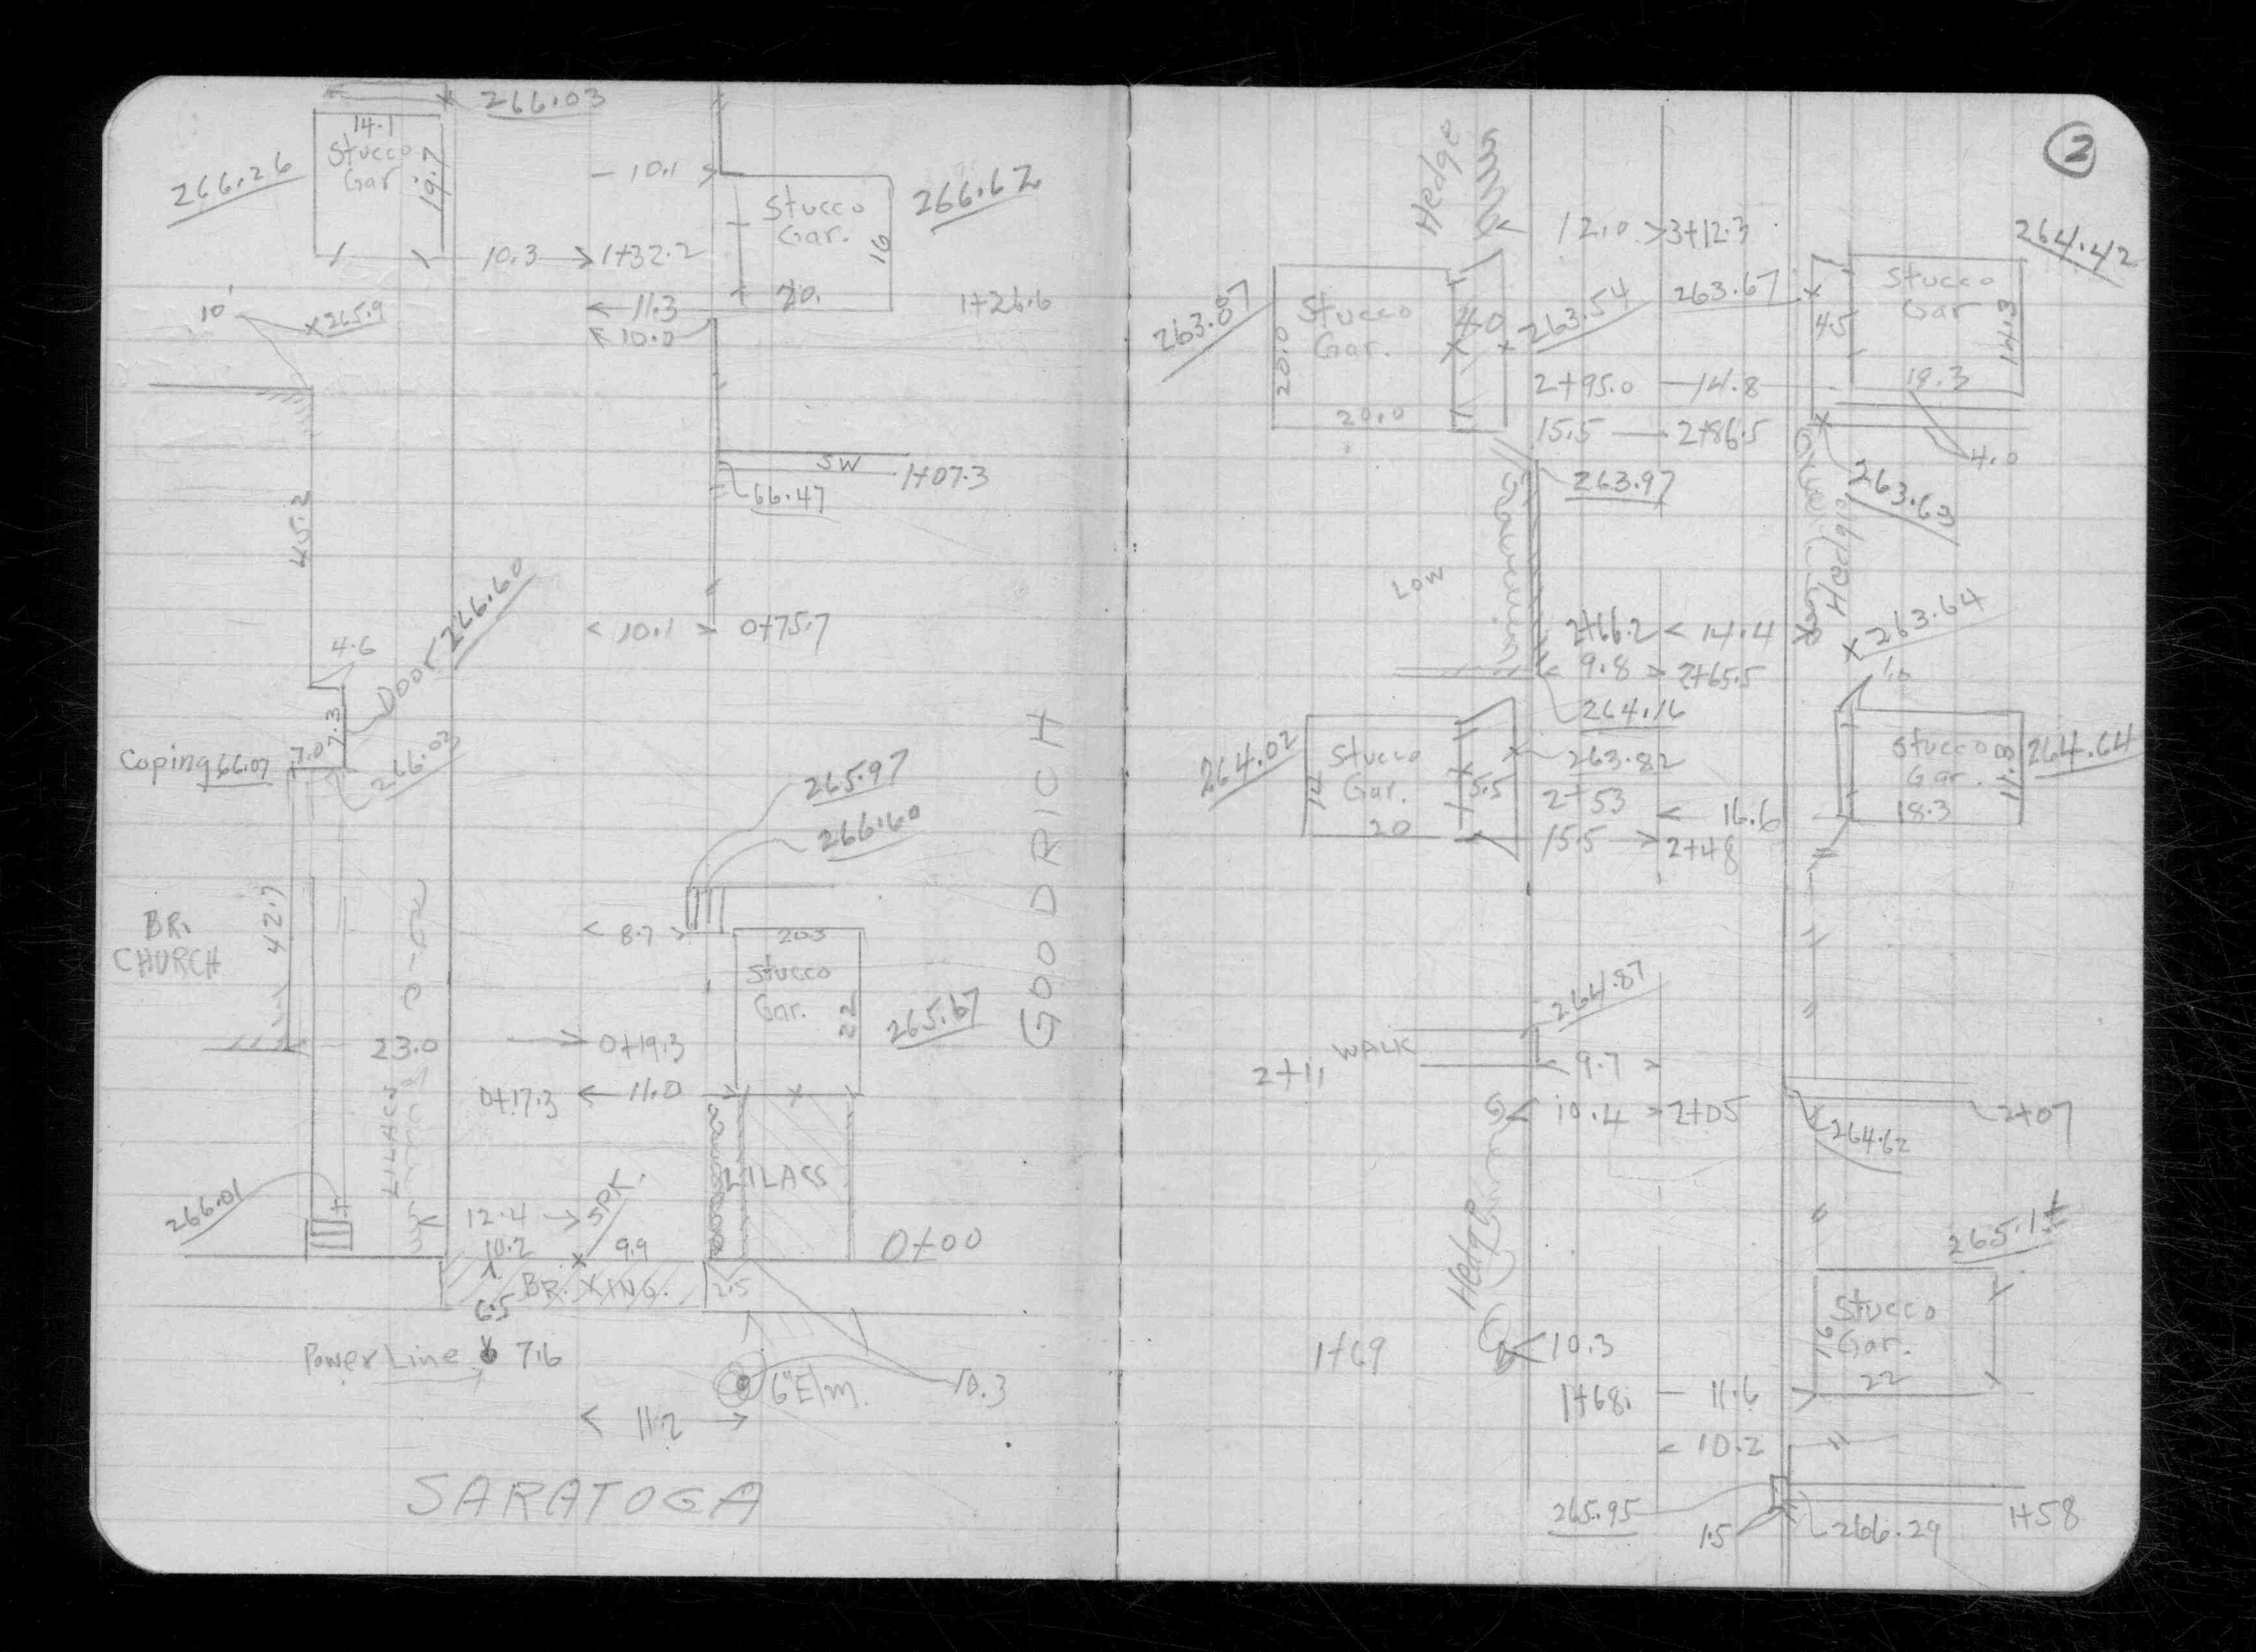 266.03
14.1
Stucco
Gar
19.7
266.26
10.1
266.62
Stucco
Gar.
16
20.
10.3
1+32.2
11.3
1+26.6
10.0
10'
265.9
SW
1+07.3
66.47
45.2
Door 266.60
10.1
0+75.7
4.6
7.3
7.0
Coping 66.07
266.02
265.97
266.60
GOODRICH
42.7
BR.
CHURCH
8.7
20.5
Stucco
Gar.
22
265.67
23.0
0+19.3
0+17.3
11.0
LILACS
LILACS
266.01
12.4
SPK.
10.2
9.9
0+00
BR. XING.
2.5
6.5
Power Line
7.6
6" Elm.
10.3
11.2
SARATOGA
2
Hedge
12.0
3+12.3
264.42
263.87
Stucco
Gar.
20.0
20.0
4.0
263.54
263.67
4.5
Stucco
Gar
14.3
18.3
2+95.0
14.8
15.5
2+86.5
4.0
263.97
263.63
Hedge
Low
2+66.2
14.4
263.64
9.8
2+65.5
1.0
264.16
264.02
Stucco
Gar.
14
20
5.5
263.82
2+53
16.6
15.5
2+48
Stucco
Gar.
11.8
18.3
264.64
264.87
WALK
2+11
9.7
10.4
2+05
2+07
264.62
Hedge
265.1±
Stucco
Gar.
16
22
1+69
10.3
1+68.
11.6
10.2
265.95
1.5
266.29
1+58